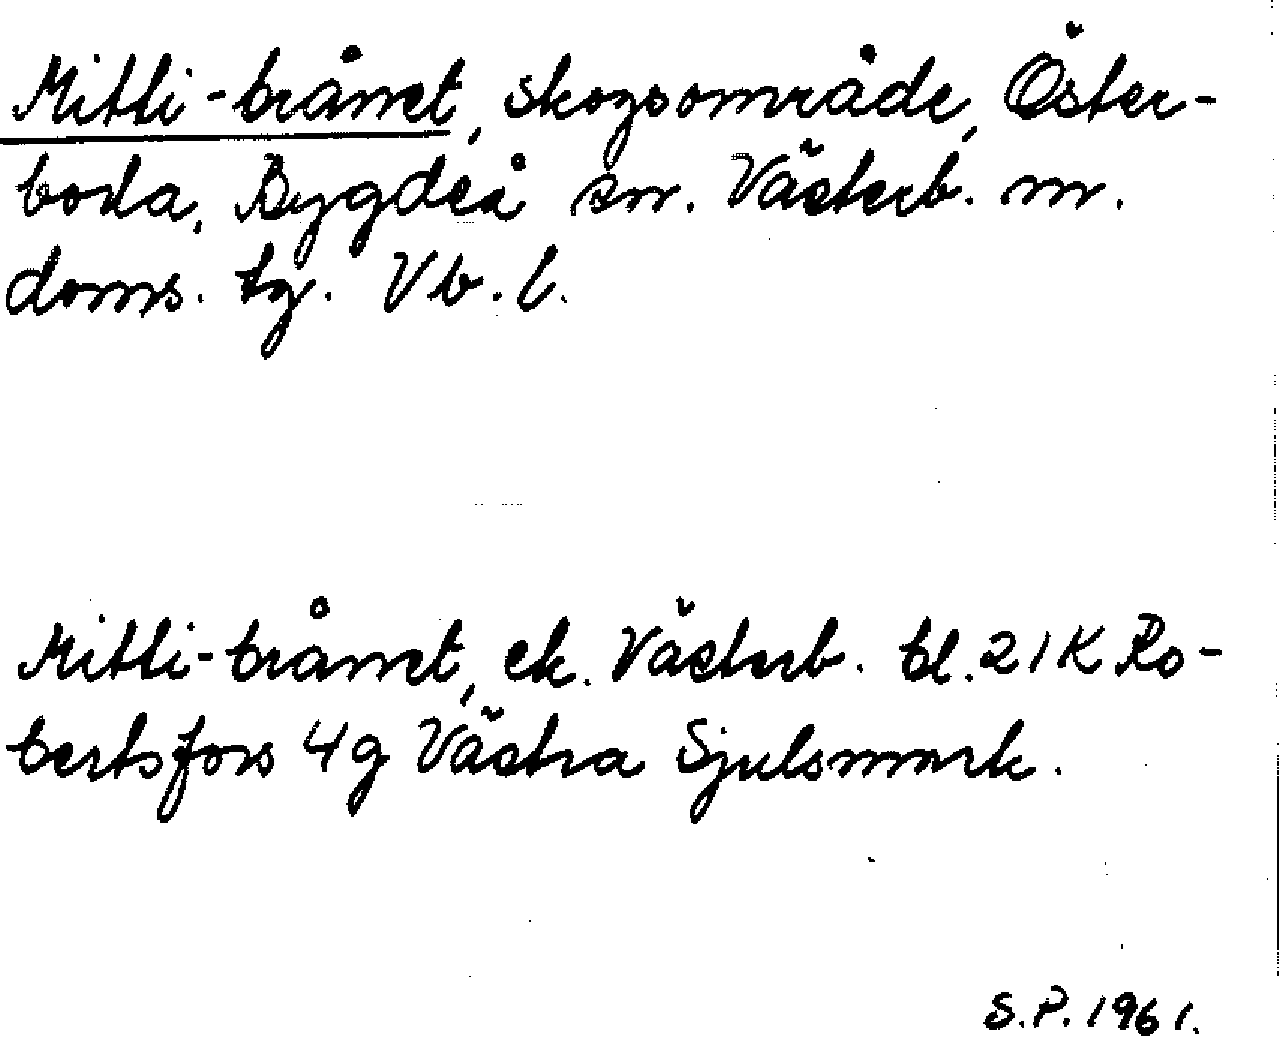 Mitti-brånet, skogsområde, Öster-
boda, Bygdeå sn. Västerb. n.
doms. tg. Vb. l.
Mitti-brånet, ek. Västerb. bl. 21K Ro-
bertsfors 4g Västra Sjulsmark.
S.P. 1961.